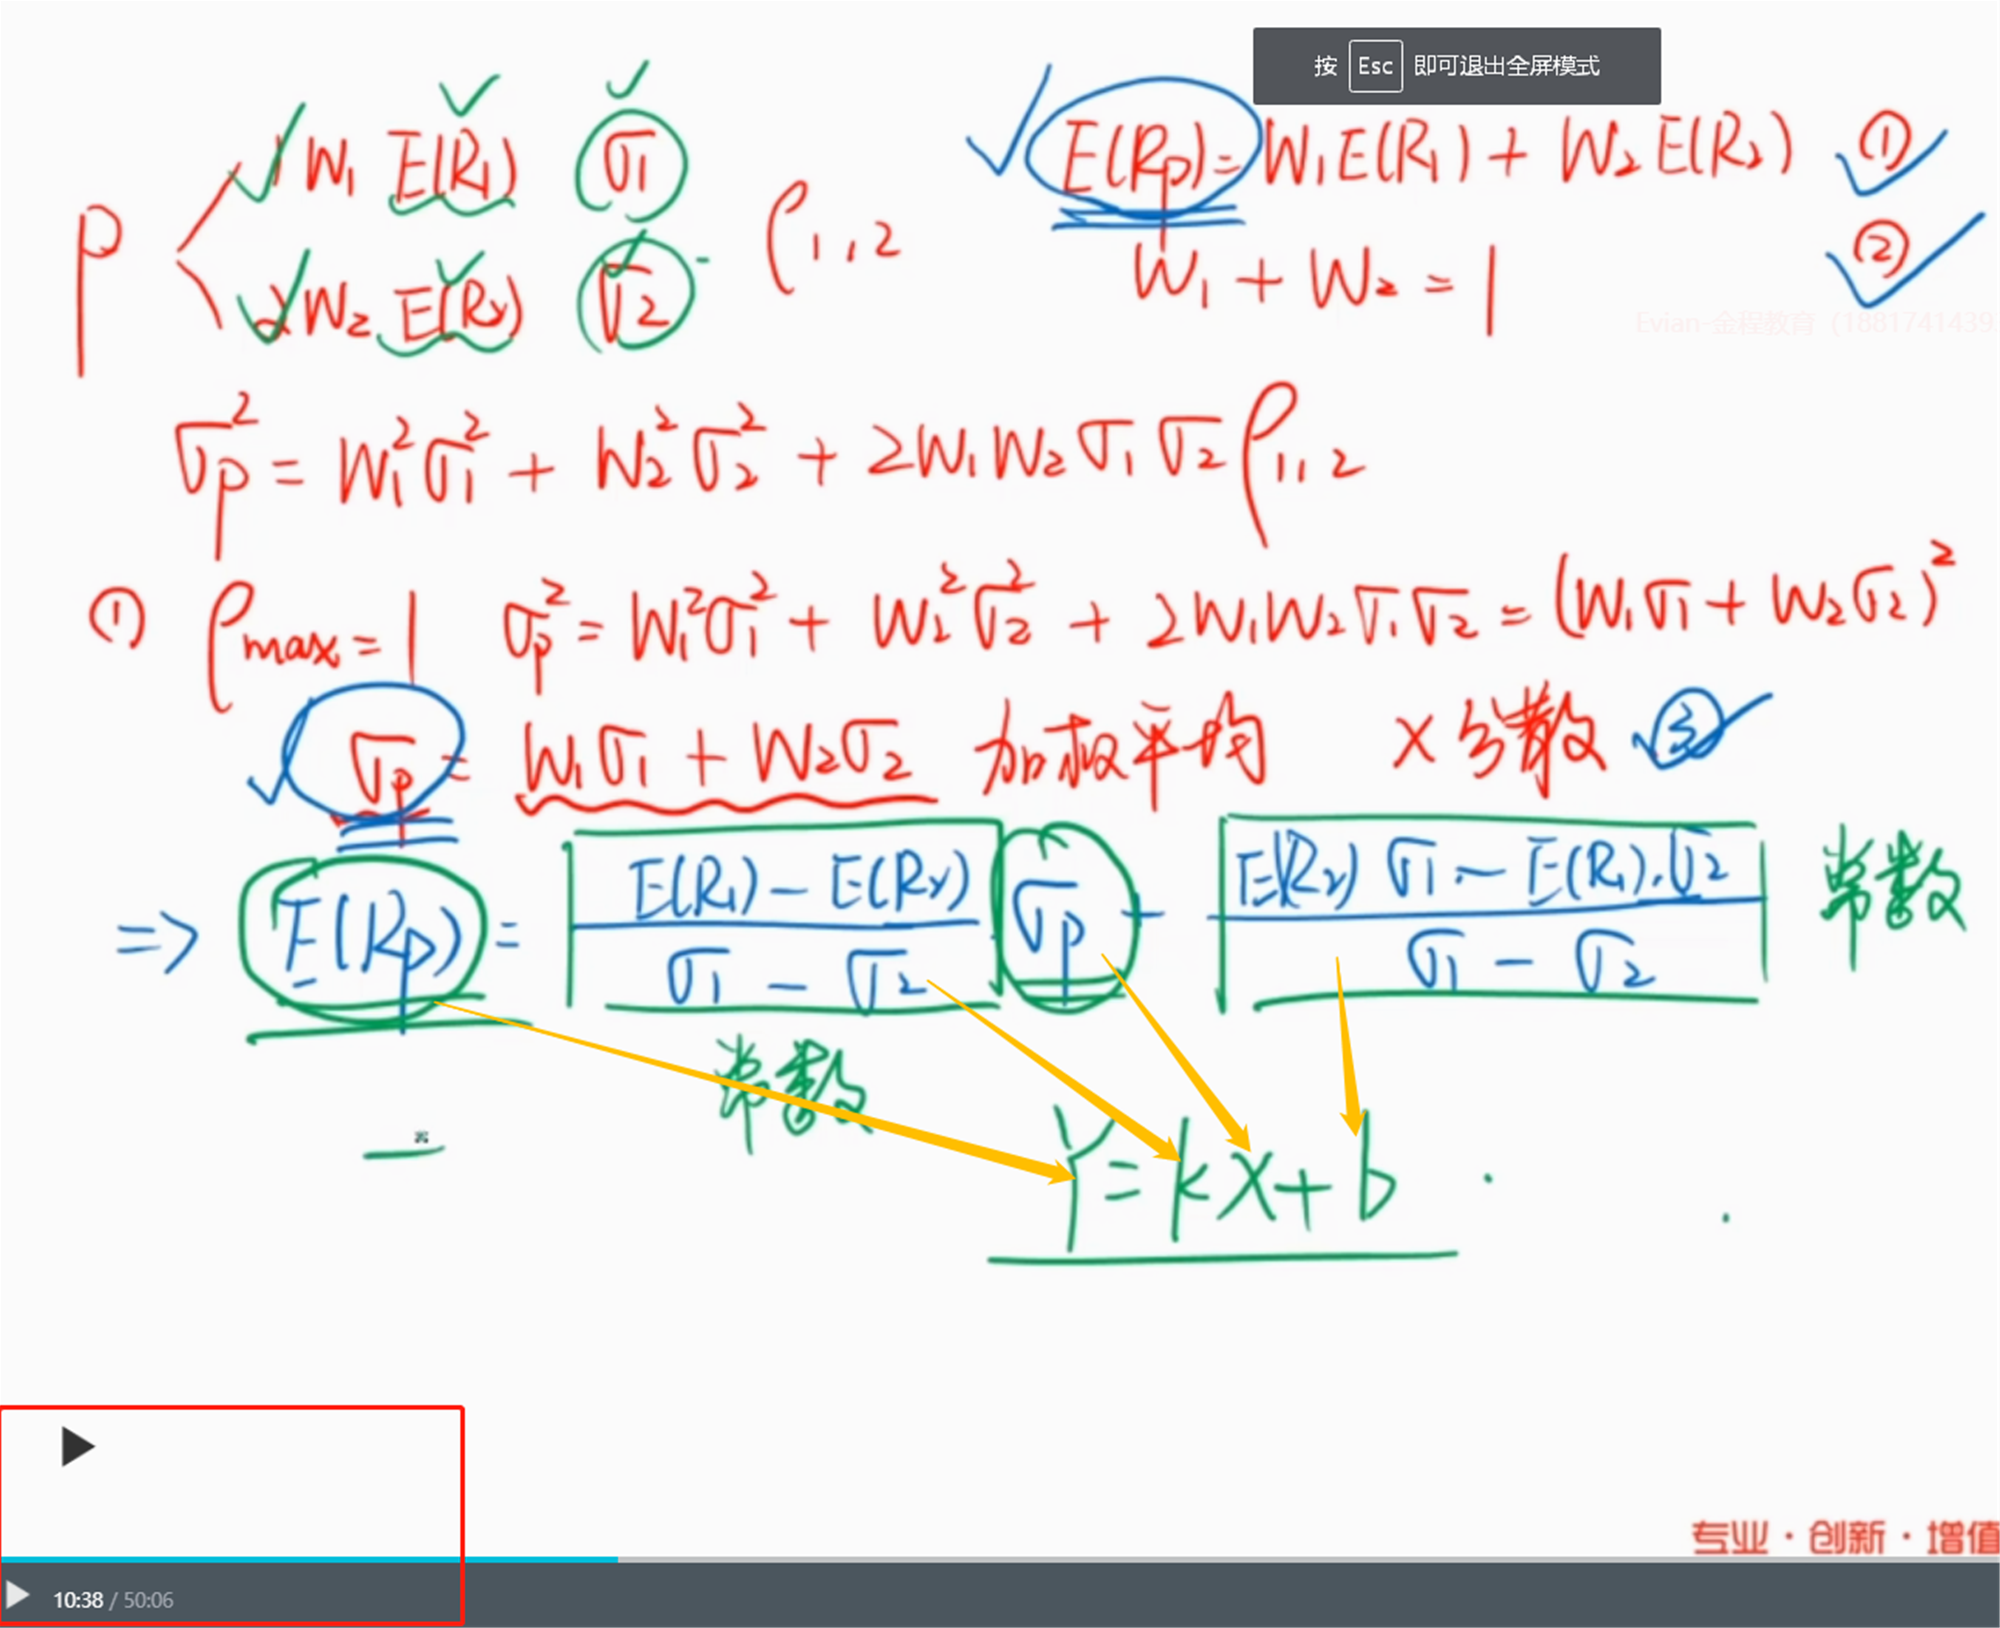 按 Esc 即可退出全屏模式
P
1 W₁ E(R₁) σ₁
2 W₂ E(R₂) σ₂
ρ₁,₂
E(Rp) = W₁E(R₁) + W₂E(R₂) ①
W₁ + W₂ = 1 ②
Evian-金程教育（1881741439
σp² = W₁²σ₁² + W₂²σ₂² + 2W₁W₂σ₁σ₂ρ₁,₂
① ρmax = 1 σp² = W₁²σ₁² + W₂²σ₂² + 2W₁W₂σ₁σ₂ = (W₁σ₁ + W₂σ₂)²
σp = W₁σ₁ + W₂σ₂ 加权平均 X分散 ③
E(R₁) − E(R₂) E(R₂) σ₁ − E(R₁).σ₂ 常数
=> E(Rp) = σp +
σ₁ − σ₂ σ₁ − σ₂
常数
Y = kX + b
专业·创新·增值
10:38 / 50:06